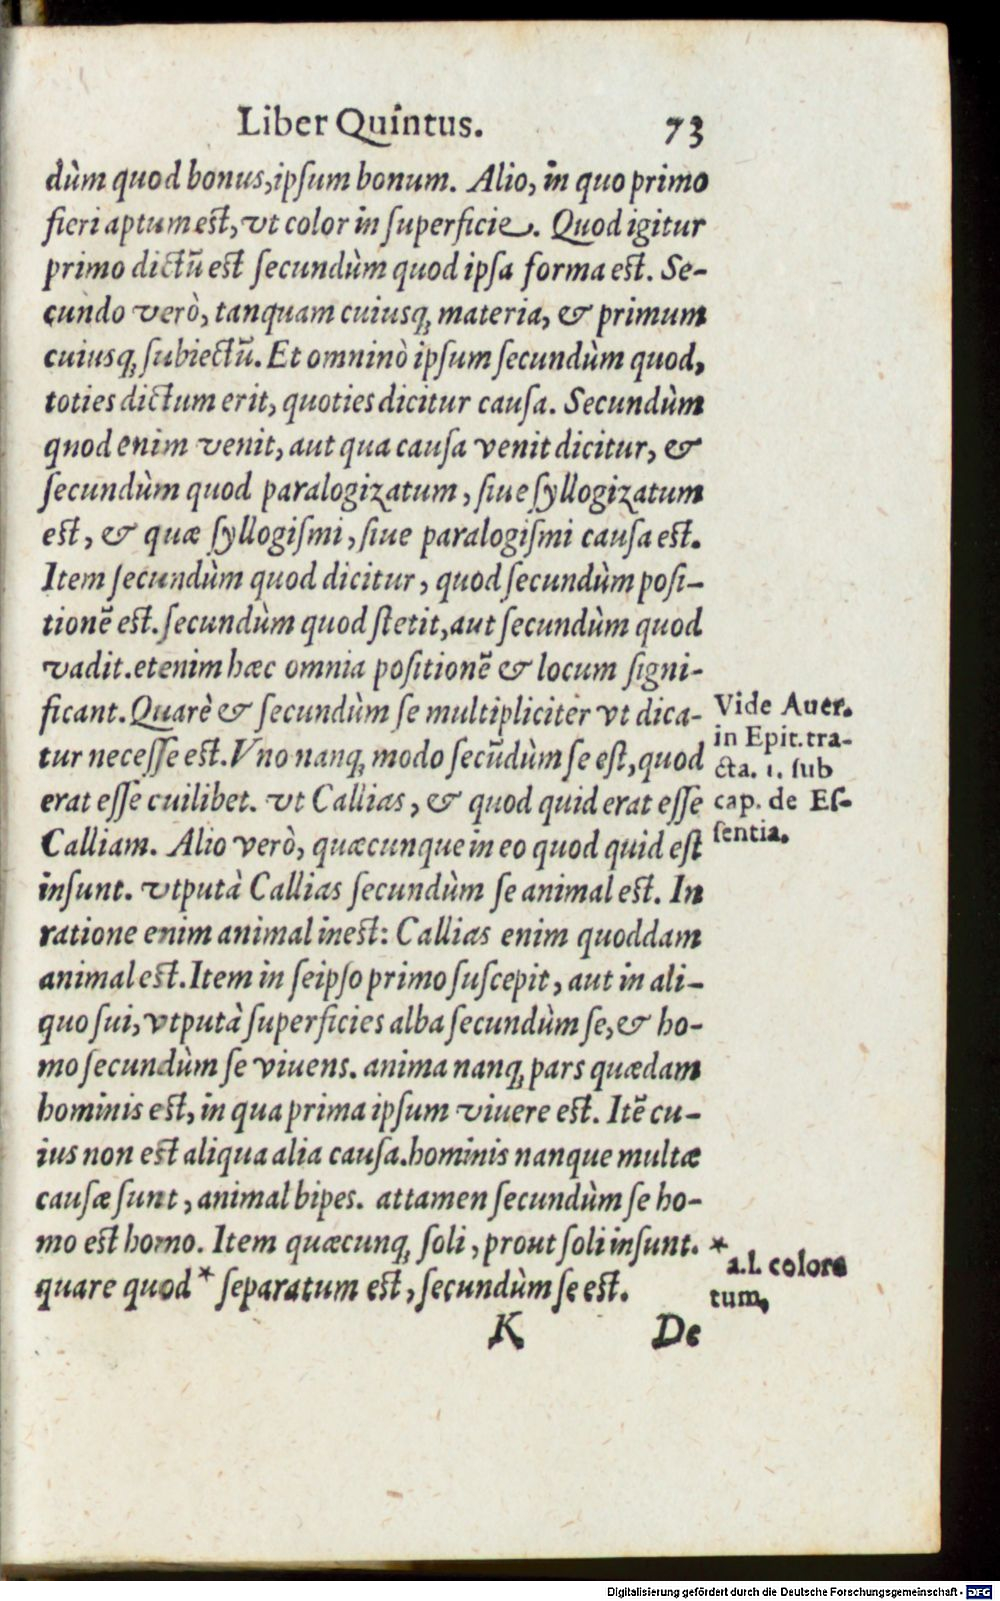 Liber Quintus. 73
dùm quod bonus, ipſum bonum. Alio, in quo primo
fieri aptum est, vt color in ſuperficie. Quod igitur
primo dictũ est ſecundùm quod ipſa forma est. Se-
cundo verò, tanquam cuiusq; materia, & primum
cuiusq; ſubiectũ. Et omninò ipſum ſecundùm quod,
toties dictum erit, quoties dicitur cauſa. Secundùm
qnod enim venit, aut qua cauſa venit dicitur, &
ſecundùm quod paralogizatum, ſiue ſyllogizatum
est, & quæ ſyllogiſmi, ſiue paralogiſmi cauſa est.
Item ſecundùm quod dicitur, quod ſecundùm poſi-
tionẽ est. ſecundùm quod ſtetit, aut ſecundùm quod
vadit. etenim hæc omnia poſitionẽ & locum ſigni-
ficant. Quarè & ſecundùm ſe multipliciter vt dica-
tur neceſſe est. Vno nanq; modo ſecũdùm ſe eſt, quod
erat eſſe cuilibet. vt Callias, & quod quid erat eſſe
Calliam. Alio verò, quæcunque in eo quod quid eſt
inſunt. vtputà Callias ſecundùm ſe animal est. In
ratione enim animal inest: Callias enim quoddam
animal est. Item in ſeipſo primo ſuſcepit, aut in ali-
quo ſui, vtputà ſuperficies alba ſecundùm ſe, & ho-
mo ſecundùm ſe viuens. anima nanq; pars quædam
hominis est, in qua prima ipſum viuere est. Itẽ cu-
ius non est aliqua alia cauſa. hominis nanque multæ
cauſæ ſunt, animal bipes. attamen ſecundùm ſe ho-
mo est homo. Item quæcunq; ſoli, prout ſoli inſunt.
quare quod * ſeparatum est, ſecundùm ſe est.
K De
Vide Auer.
in Epit. tra-
cta. 1. ſub
cap. de Eſ-
ſentia.
* a.l. colora
tum,
Digitalisierung gefördert durch die Deutsche Forschungsgemeinschaft - DFG